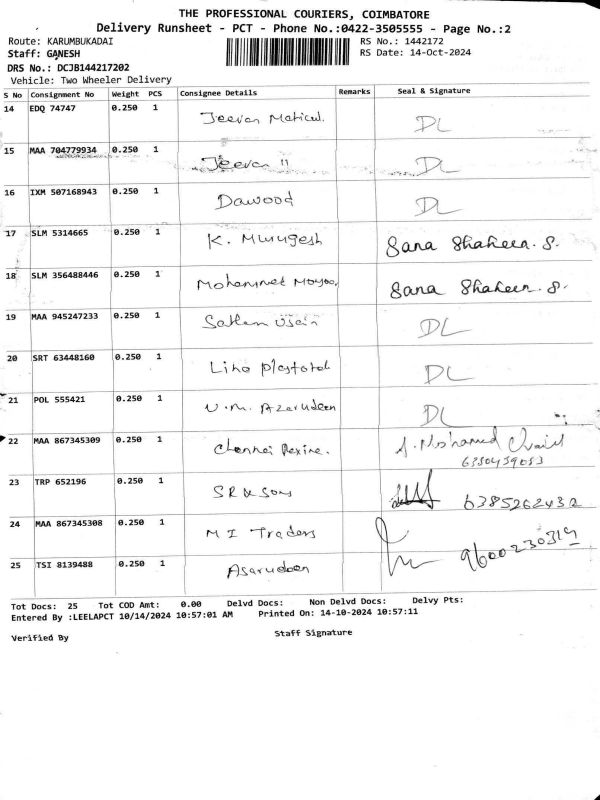 THE PROFESSIONAL COURIERS, COIMBATORE
Delivery Runsheet - PCT - Phone No.:0422-3505555 - Page No.:2
Route: KARUMBUKADAI RS No.: 1442172
Staff: GANESH RS Date: 14-Oct-2024
DRS No.: DCJB144217202
Vehicle: Two Wheeler Delivery
S No Consignment No Weight PCS Consignee Details Remarks Seal & Signature
14 EDQ 74747 0.250 1 Jeevan Matical. DL
15 MAA 704779934 0.250 1 Jeevan 11 DL
16 IXM 507168943 0.250 1 Dawood DL
17 SLM 5314665 0.250 1 K. Murugesh Sana Shaheen. S.
18 SLM 356488446 0.250 1 Mohammed Sana Shaheen. S.
19 MAA 945247233 0.250 1 DL
20 SRT 63448160 0.250 1 DL
21 POL 555421 0.250 1 U.M. Azarudeen DL
22 MAA 867345309 0.250 1 Chennai Rexine. A. Mohamed
23 TRP 652196 0.250 1 SR & Sons 6385262432
24 MAA 867345308 0.250 1 M I Traders 9600230319
25 TSI 8139488 0.250 1 Asarudeen
Tot Docs: 25 Tot COD Amt: 0.00 Delvd Docs: Non Delvd Docs: Delvy Pts:
Entered By :LEELAPCT 10/14/2024 10:57:01 AM Printed On: 14-10-2024 10:57:11
Verified By Staff Signature